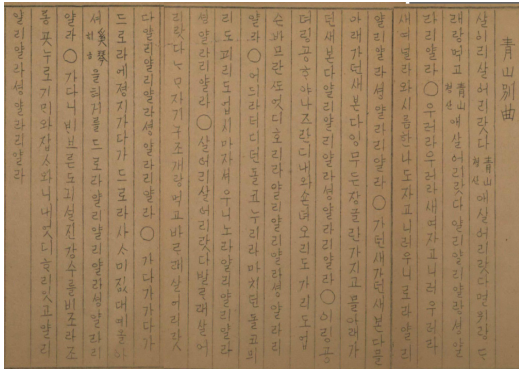 青山別曲
살어리살어리랏다青山청산애살어리랏다멀위랑ᄃᆞ
래랑먹고青山청산애살어리랏다얄리얄리얄랑셩얄
라리얄라○우러라우러라새여자고니러우러라
새여널라와시름한나도자고니러우니로라얄리
얄리얄라셩얄라리얄라○가던새가던새본다믈
아래가던새본다잉무든장글란가지고믈아래가
던새본다얄리얄리얄라셩얄라리얄라○이링공
뎌링공ᄒᆞ야나즈란디내와손뎌오리도가리도업
슨바므란ᄯᅩ엇디호리라얄리얄리얄라셩얄라리
얄라○어듸라더디던돌코누리라마치던돌코믜
리도괴리도업시마자셔우니노라얄리얄리얄라
셩얄라리얄라○살어리살어리랏다바ᄅᆞ래살어
리랏다ᄂᆞᄆᆞ자기구조개랑먹고바ᄅᆞ래살어리랏
다얄리얄리얄라셩얄라리얄라○가다가가다가
드로라에졍지가다가드로라사ᄉᆞ미짒대예올아
셔奚琴ᄒᆡ금을혀거를드로라얄리얄리얄라셩얄라리
얄라○가다니ᄇᆡ브른도긔설진강수를비조라조
롱곳누로기ᄆᆡ와잡ᄉᆞ와니내엇디ᄒᆞ리잇고얄리
얄리얄라셩얄라리얄라